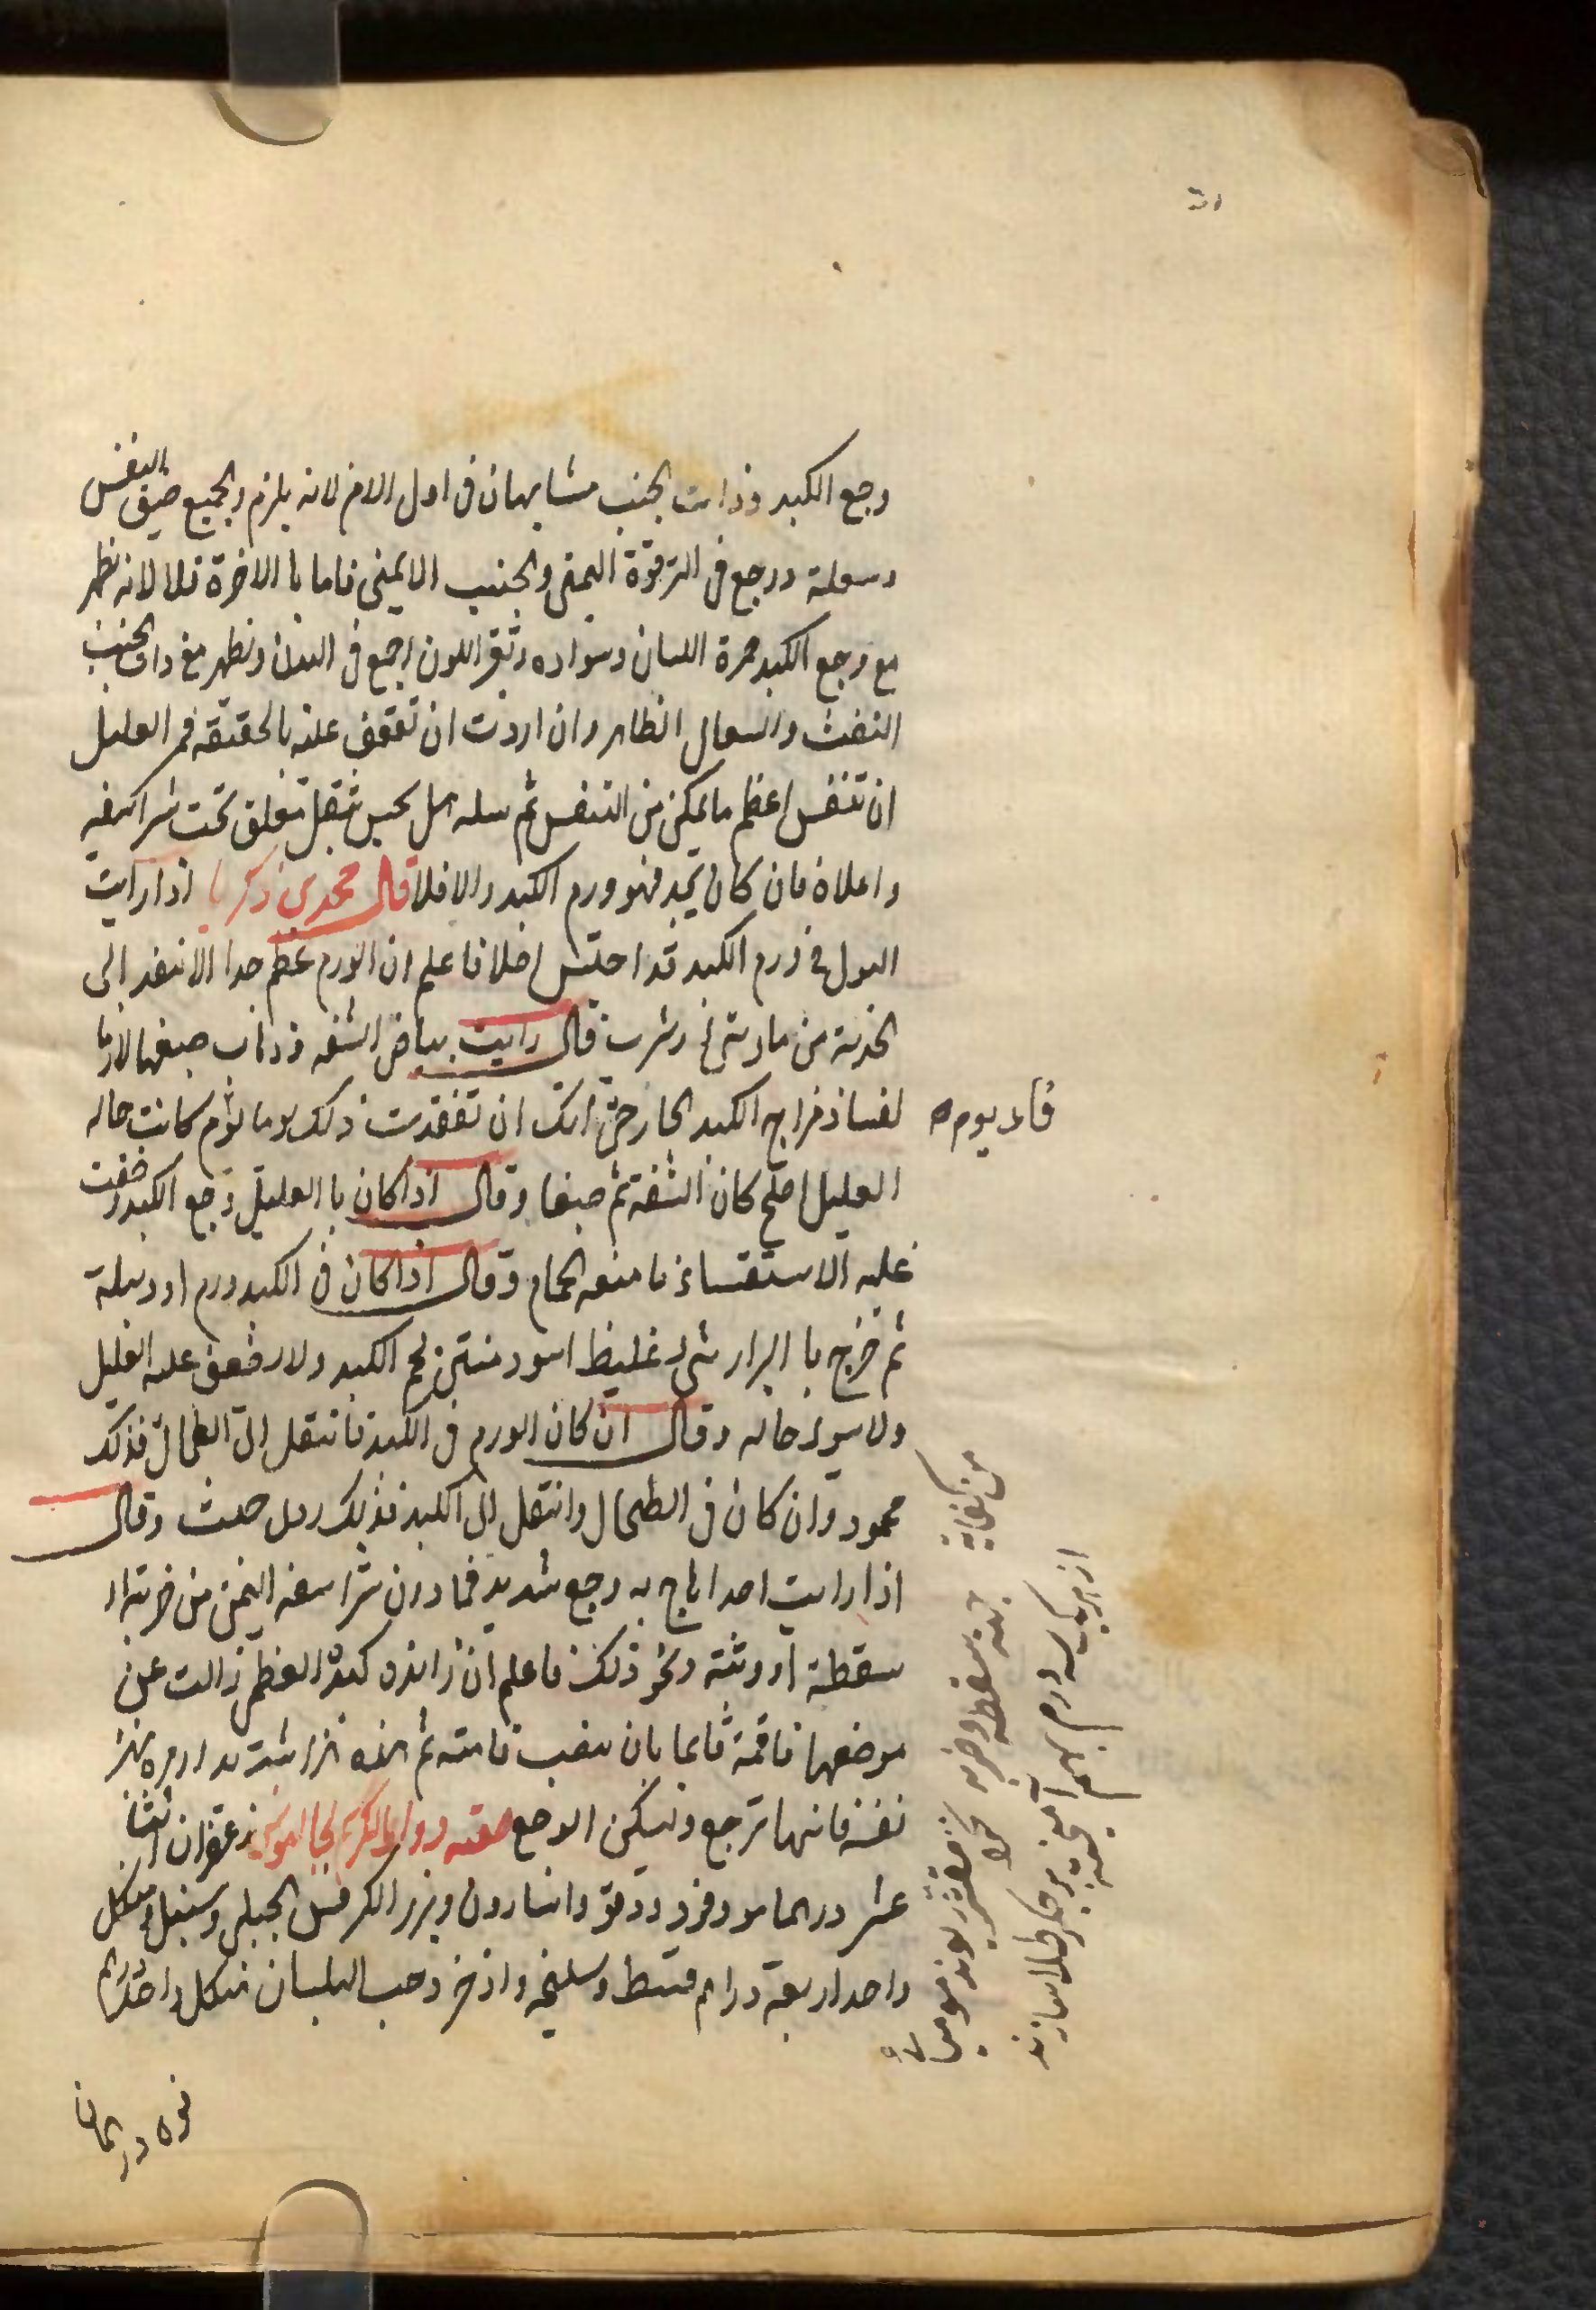 وجع الكبد وذات الجنب مشابهان فى اول الامر لانه يلزم الجميع ضيق النفس
وسعلة ووجع فى الترقوة اليمنى والجنب الايمنى فاما با الاخرة فلا لانه يظهر
مع وجع الكبد حمرة اللسان وسواده وتغير اللون اجمع فى البدن ويظهر مع ذات الجنب
النفث والسعال الظاهر وان اردت ان تقف عليه بالحقيقه فمر العليل
ان تنفس اعظم ما يمكن من التنفس ثم سله هل يحس بثقل متعلق تحت شراسيفه
واعلاه فان كان يجد فهو ورم الكبد والا فلا قال محمد بن زكريا اذا رايت
البول فى ورم الكبد قد احتبس اصلا فاعلم ان الورم عظم جدا لا ينفذ الى
الحدبة من ماء شىء وشرب قال رايت بياض الشفه وذهاب صبغها لازما
لفساد مزاج الكبد الحار حتى انك ان تفقدت ذلك يوما يوم كانت حاله
العليل اصلح كان الشفة ثم صبغا وقال اذا كان با العليل وجع الكبد وخفت
عليه الاستسقاء فامنعه الحمام وقال اذا كان فى الكبد ورم او دبيلة
ثم خرج با البراز شىء غليظ اسود منتن لحم الكبد ولا يضعف عليه العليل
ولا سوء حاله وقال ان كان الورم فى الكبد فانتقل الى الطحال فذلك
محمود وان كان فى الطحال وانتقل الى الكبد فذلك ردى خبيث وقال
اذا رايت احدا هاج به وجع شديد فما دون شراسفه اليمنى من ضربة او
سقطة او وثبة ونحو ذلك فاعلم ان زائده كبده العظمى زالت عن
موضعها فاقمه قائما بان ينصب قامته ثم يهزه هزا شديدا ومره يهز
نفسه فانها ترجع ويسكن الوجع صفه دواء الكركم لجالينوس زعفران اثنا
عشر درهما مو وفو ودوقو واسارون وبزر الكرفس الجبلى وسنبل من كل
واحد اربعة دراهم قسط وسليخه واذخر وحب البلسان من كل واحد درهم
قاء يوم ه
من كفاية
جهة سقطه وضربه
از هر يك سه درم بهم آميخته بر جگر طلا سازند
نوه درهمان